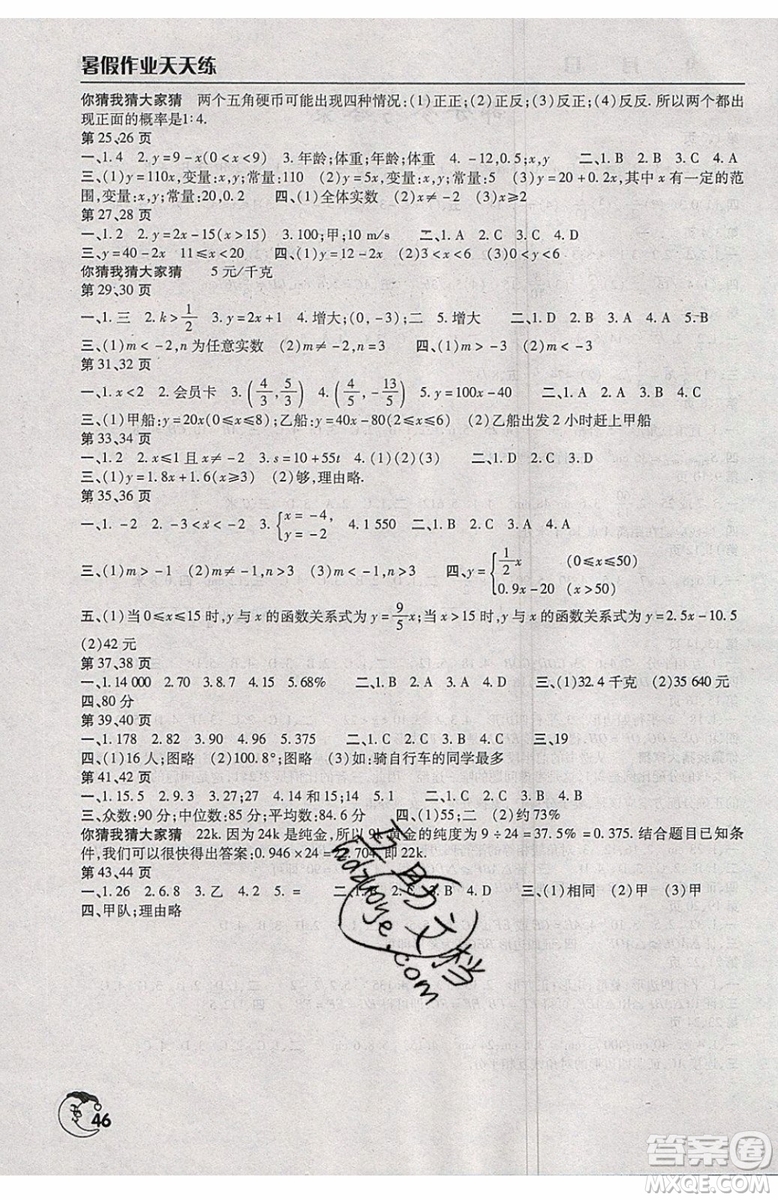 暑假作业天天练
你猜我猜大家猜 两个五角硬币可能出现四种情况:(1)正正;(2)正反;(3)反正;(4)反反. 所以两个都出
现正面的概率是1∶4.
第25、26页
一、1.4 2.y=9-x(0<x<9) 3.年龄;体重;年龄;体重 4.-12,0.5;x,y 二、1.C 2.B 3.C 4.A
三、(1)y=110x,变量:x,y;常量:110 (2)y=5x,变量:x,y;常量:5 (3)y=20+0.2x,其中x有一定的范
围,变量:x,y;常量:20,0.2 四、(1)全体实数 (2)x≠-2 (3)x≥2
第27、28页
一、1.2 2.y=2x-15(x>15) 3.100;甲;10 m/s 二、1.A 2.B 3.C 4.D
三、y=40-2x 11≤x<20 四、(1)y=12-2x (2)3<x<6 (3)2<y<6
你猜我猜大家猜 5元/千克
第29、30页
一、1.三 2.k>1/2 3.y=2x+1 4.增大;(0,-3);二 5.增大 二、1.D 2.B 3.A 4.A 5.B
三、(1)m<-2,n为任意实数 (2)m≠-2 四、(1)m>-3 (2)m<-3
第31、32页
一、1.x<2 2.会员卡 3.(4/3,5/3) 4.(4/5,-13/5) 5.y=100x-40 二、1.B 2.C 3.C 4.A
三、(1)甲船:y=20x(0≤x≤8);乙船:y=40x-80(2≤x≤6) (2)乙船出发2小时赶上甲船
第33、34页
一、1.2 2.x≤1且x≠-2 3.s=10+55t 4.(1)甲(2)8 二、1.A 2.C 3.D
三、(1)y=1.8x+1.6(x≥3) (2)够,理由略.
第35、36页
一、1.-2 2.-2 3.{x=-4, y=-2 4.1 550 二、1.B 2.C 3.B 4.A
三、(1)m>-1 (2)m≠-1,n>3 (3)m<-1,n>3 四、y={1/2x (0≤x≤50) 0.9x-20 (x>50)
五、(1)当0≤x≤15时,y与x的函数关系式为y=9/5x;当x>15时,y与x的函数关系式为y=2.5x-10.5
(2)42元
第37、38页
一、1.14 000 2.70 3.8.7 4.15 5.68% 二、1.B 2.A 3.B 4.D 三、(1)32.4千克 (2)35 640元
四、80分
第39、40页
一、1.178 2.25 3.90 4.90 5.96 二、1.C 2.D 3.B 4.D 三、19
四、(1)16人;图略 (2)100.8°;图略 (3)如:骑自行车的同学最多
第41、42页
一、1.15.5 2.9 3.5 4.15;14;15;14.5 5.1 二、1.D 2.B 3.B 4.D
三、众数:90分;中位数:85分;平均数:84.6分 四、(1)55;二 (2)约73%
你猜我猜大家猜 22k. 因为24k是纯金,所以9k黄金的纯度为9÷24=37.5%=0.375. 结合题目已知条
件,我们可以很快得出答案:0.946×24=22.704,即22k.
第43、44页
一、1.26 2.6.8 3.乙 4.2 5.= 二、1.D 2.B 3.C 4.D 三、(1)相同 (2)甲 (3)甲
四、甲队;理由略
46
答案圈
MXQE.COM